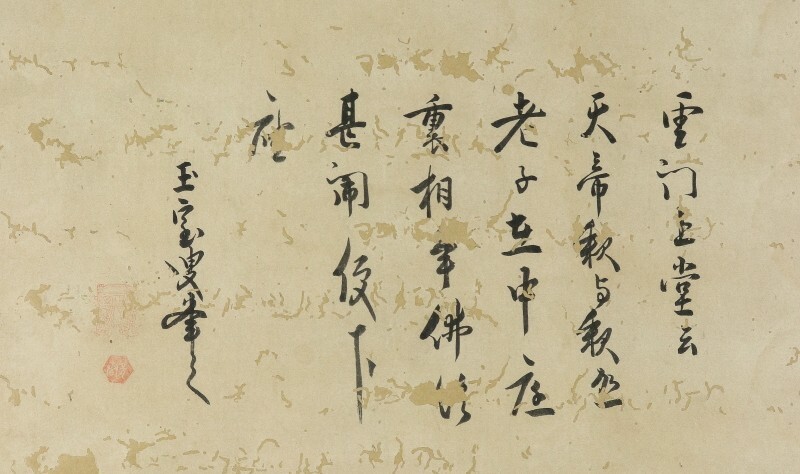 雲門上堂云
天帝釈与釈迦
老子在中庭
裏相争佛法
甚閙便下
座
玉室叟